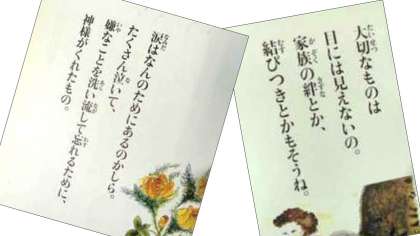 涙はなんのためにあるのかしら。
たくさん泣いて、
嫌なことを洗い流して忘れるために、
神様がくれたもの。
大切なものは
目には見えないの。
家族の絆とか、
結びつきとかもそうね。